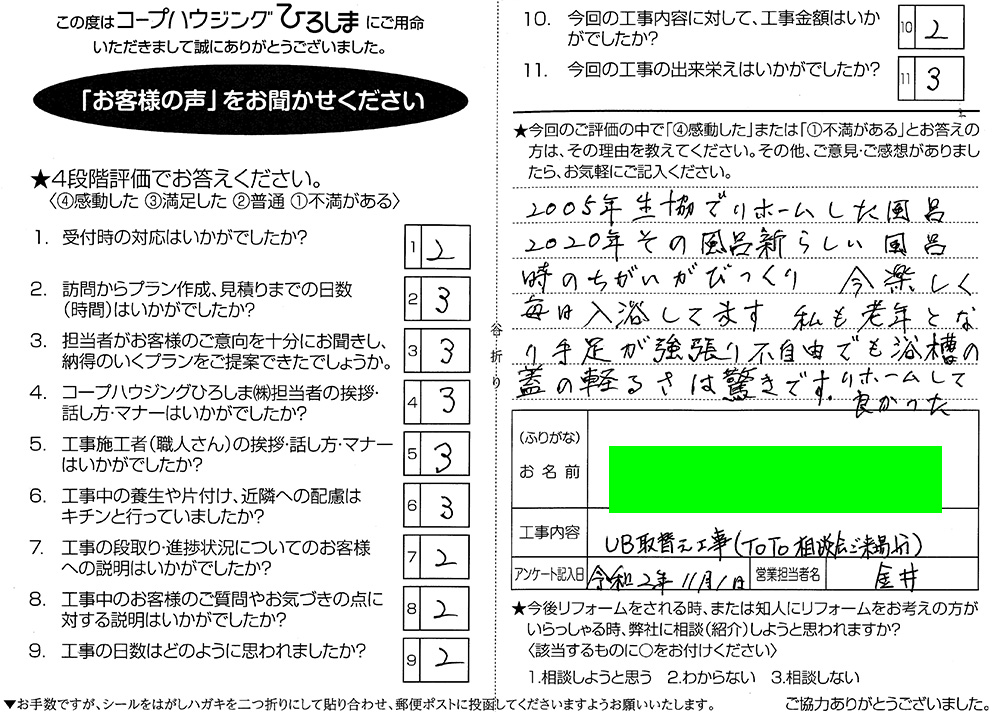 この度はコープハウジングひろしまにご用命
いただきまして誠にありがとうございました。
「お客様の声」をお聞かせください
★4段階評価でお答えください。
〈④感動した ③満足した ②普通 ①不満がある〉
1. 受付時の対応はいかがでしたか?
1 2
2. 訪問からプラン作成、見積りまでの日数
(時間)はいかがでしたか?
2 3
3. 担当者がお客様のご意向を十分にお聞きし、
納得のいくプランをご提案できたでしょうか。
3 3
4. コープハウジングひろしま㈱担当者の挨拶・
話し方・マナーはいかがでしたか?
4 3
5. 工事施工者(職人さん)の挨拶・話し方・マナー
はいかがでしたか?
5 3
6. 工事中の養生や片付け、近隣への配慮は
キチンと行っていましたか?
6 3
7. 工事の段取り・進捗状況についてのお客様
への説明はいかがでしたか?
7 2
8. 工事中のお客様のご質問やお気づきの点に
対する説明はいかがでしたか?
8 2
9. 工事の日数はどのように思われましたか?
9 2
谷折り
10. 今回の工事内容に対して、工事金額はいか
がでしたか?
10 2
11. 今回の工事の出来栄えはいかがでしたか?
11 3
★今回のご評価の中で「④感動した」または「①不満がある」とお答えの
方は、その理由を教えてください。その他、ご意見・ご感想がありまし
たら、お気軽にご記入ください。
2005年生協でリホームした風呂
2020年その風呂新らしい風呂
時のちがいがびっくり 今楽しく
毎日入浴してます 私も老年とな
り手足が強張り不自由でも浴槽の
蓋の軽るさは驚きです。リホームして
良かった
(ふりがな)
お名前
工事内容
UB取替え工事(TOTO相談会ご来場分)
アンケート記入日 令和2年11月1日 営業担当者名 金井
★今後リフォームをされる時、または知人にリフォームをお考えの方が
いらっしゃる時、弊社に相談(紹介)しようと思われますか?
〈該当するものに○をお付けください〉
1.相談しようと思う 2.わからない 3.相談しない
▼お手数ですが、シールをはがしハガキを二つ折りにして貼り合わせ、郵便ポストに投函してくださいますようお願いいたします。
ご協力ありがとうございました。